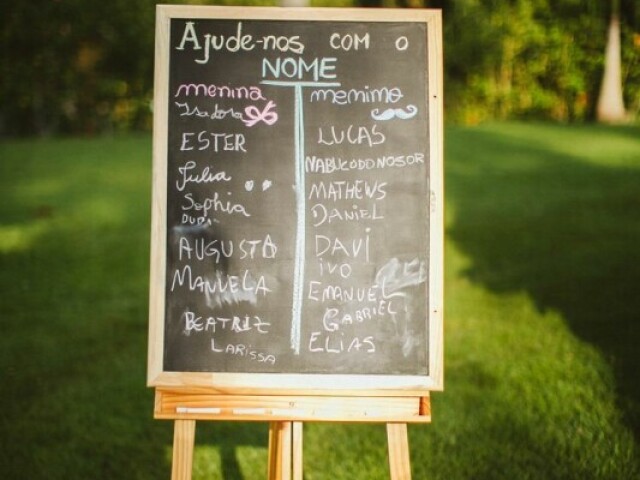 Ajude-nos com o
NOME
menina
Isadora
ESTER
Julia
Sophia
AUGUSTA
MANUELA
BEATRIZ
LARISSA
menino
LUCAS
NABUCODONOSOR
MATHEWS
DANIEL
DAVI
IVO
EMANUEL
GABRIEL
ELIAS